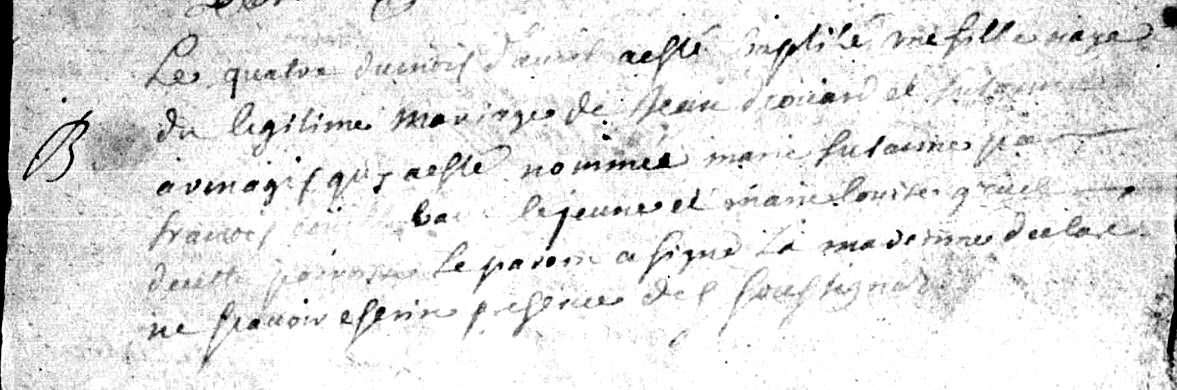 Le quatre dumois d'avril aesté baptisée une fille naye
du legitime mariage de Jean drouard et Susanne
B
armagis qui aesté nommée marie susanne par
francois le jeune et marie louise gruel
decette paroisse Le parein a signé La mareinne declare
ne scavoir escrire presence des soussignés